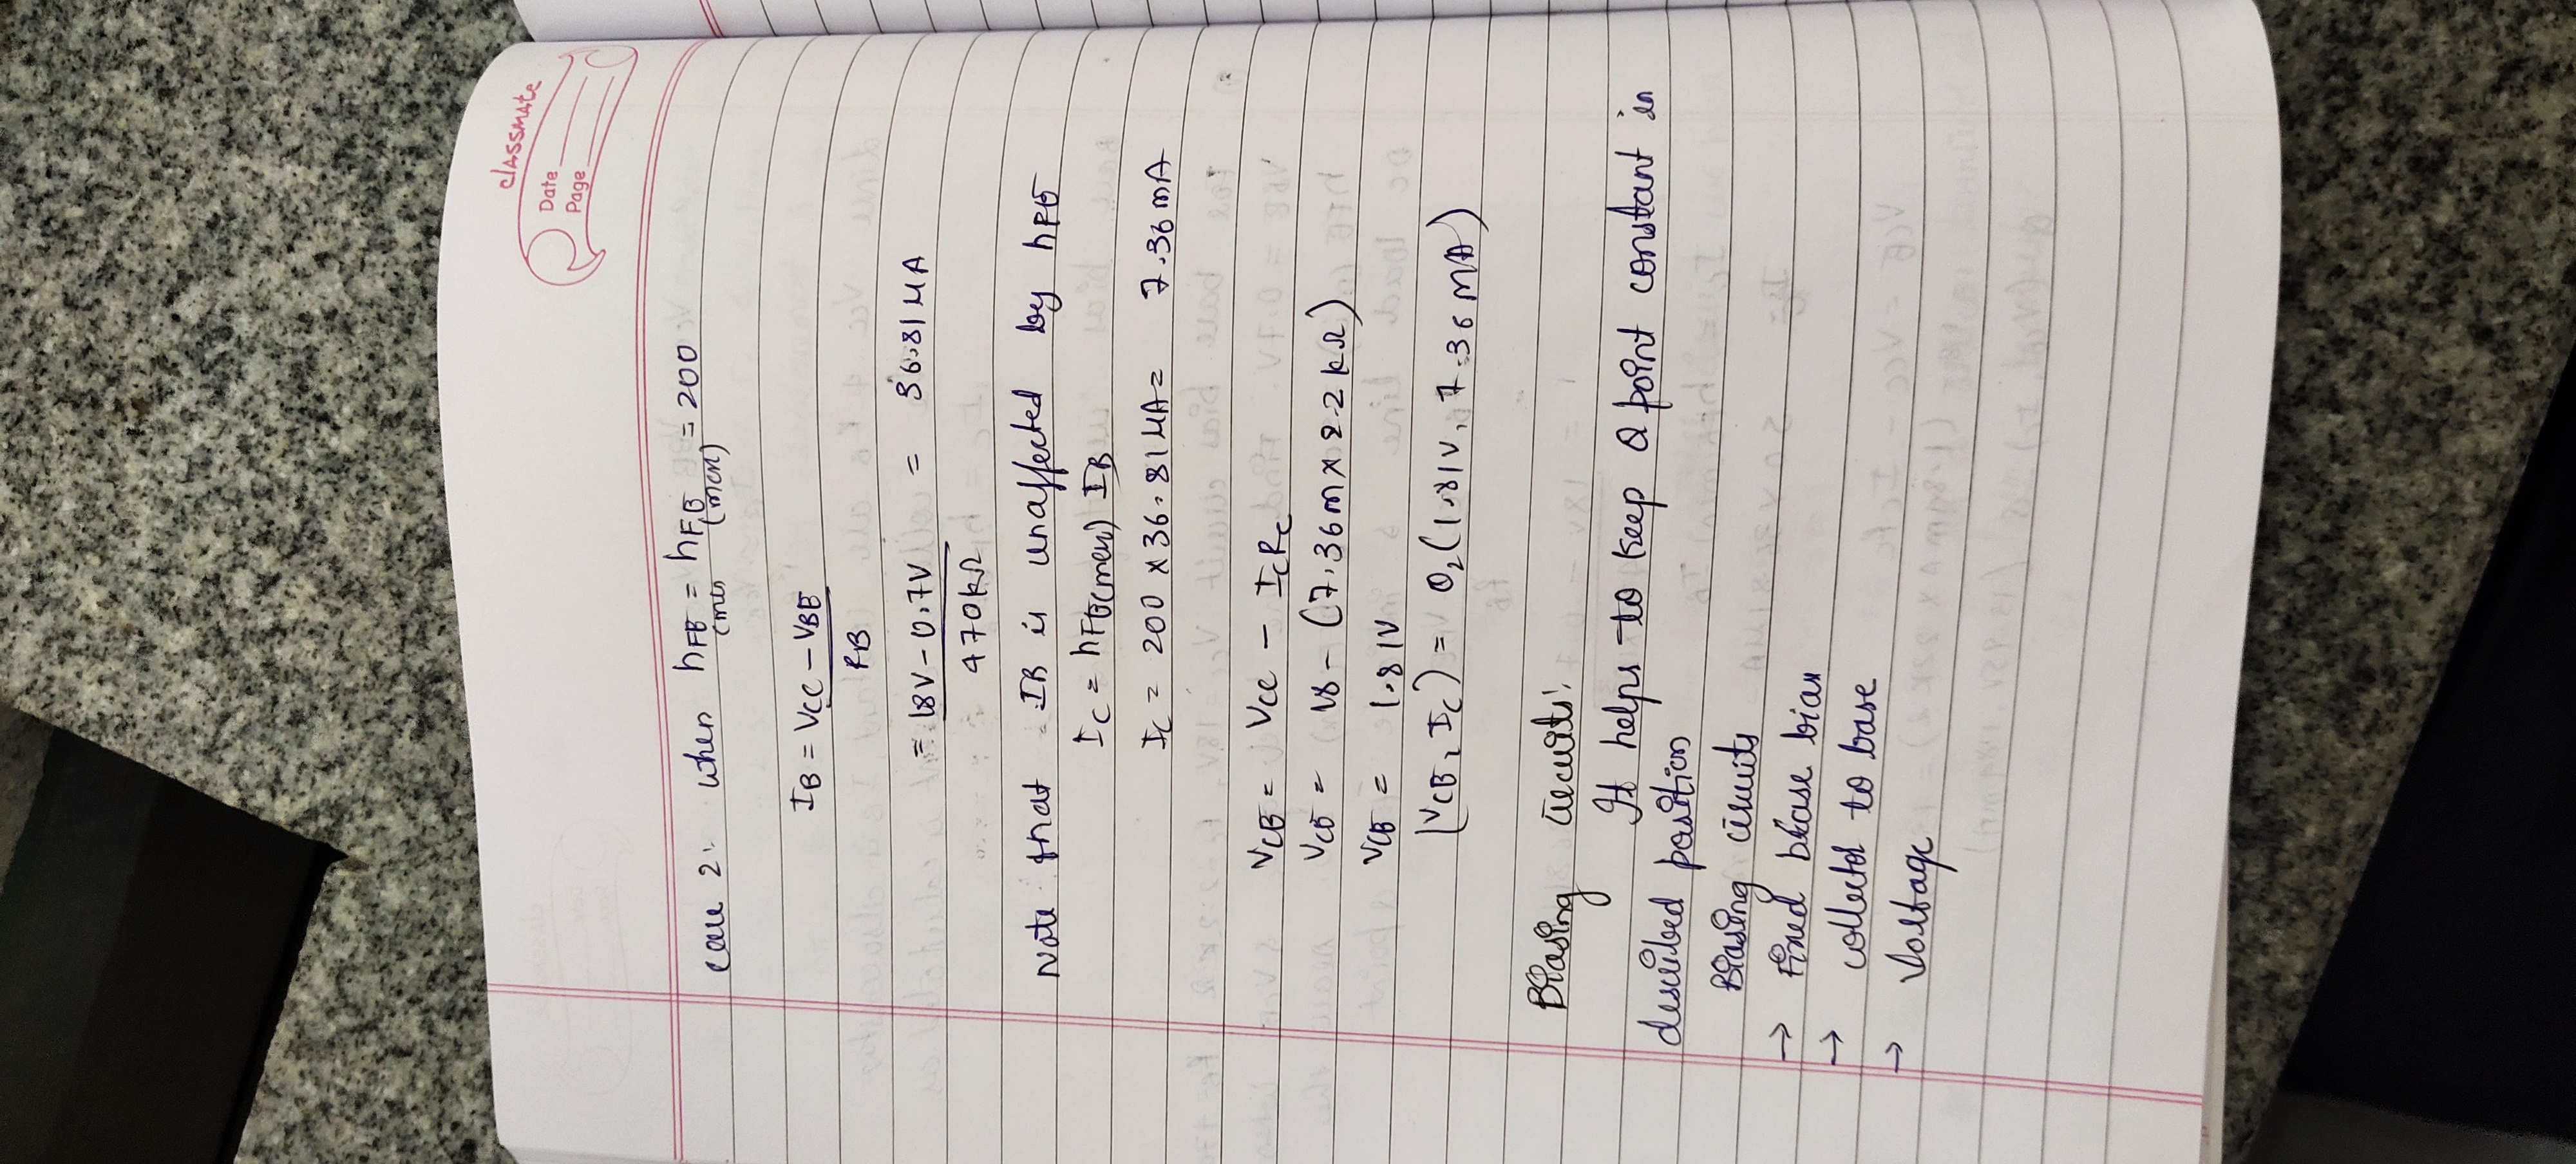 classmate
Date
Page
Case 2: when hFE = hFE = 200
(min (max)
IB = VCC - VBE
RB
= 18V - 0.7V = 36.81 μA
470kΩ
Note that IB is unaffected by hFE
IC = hFE(max) IB
IC = 200 x 36.81 μA = 7.36 mA
VCE = VCC - ICRC
VCE = 18 - (7.36m x 2.2 kΩ)
VCE = 1.81V
(VCE, IC) = Q2(1.81V, 7.36 mA)
Biasing Circuits:
It helps to keep Q point constant in
described position
Biasing circuits
→ Fixed base bias
→ collector to base
→ Voltage